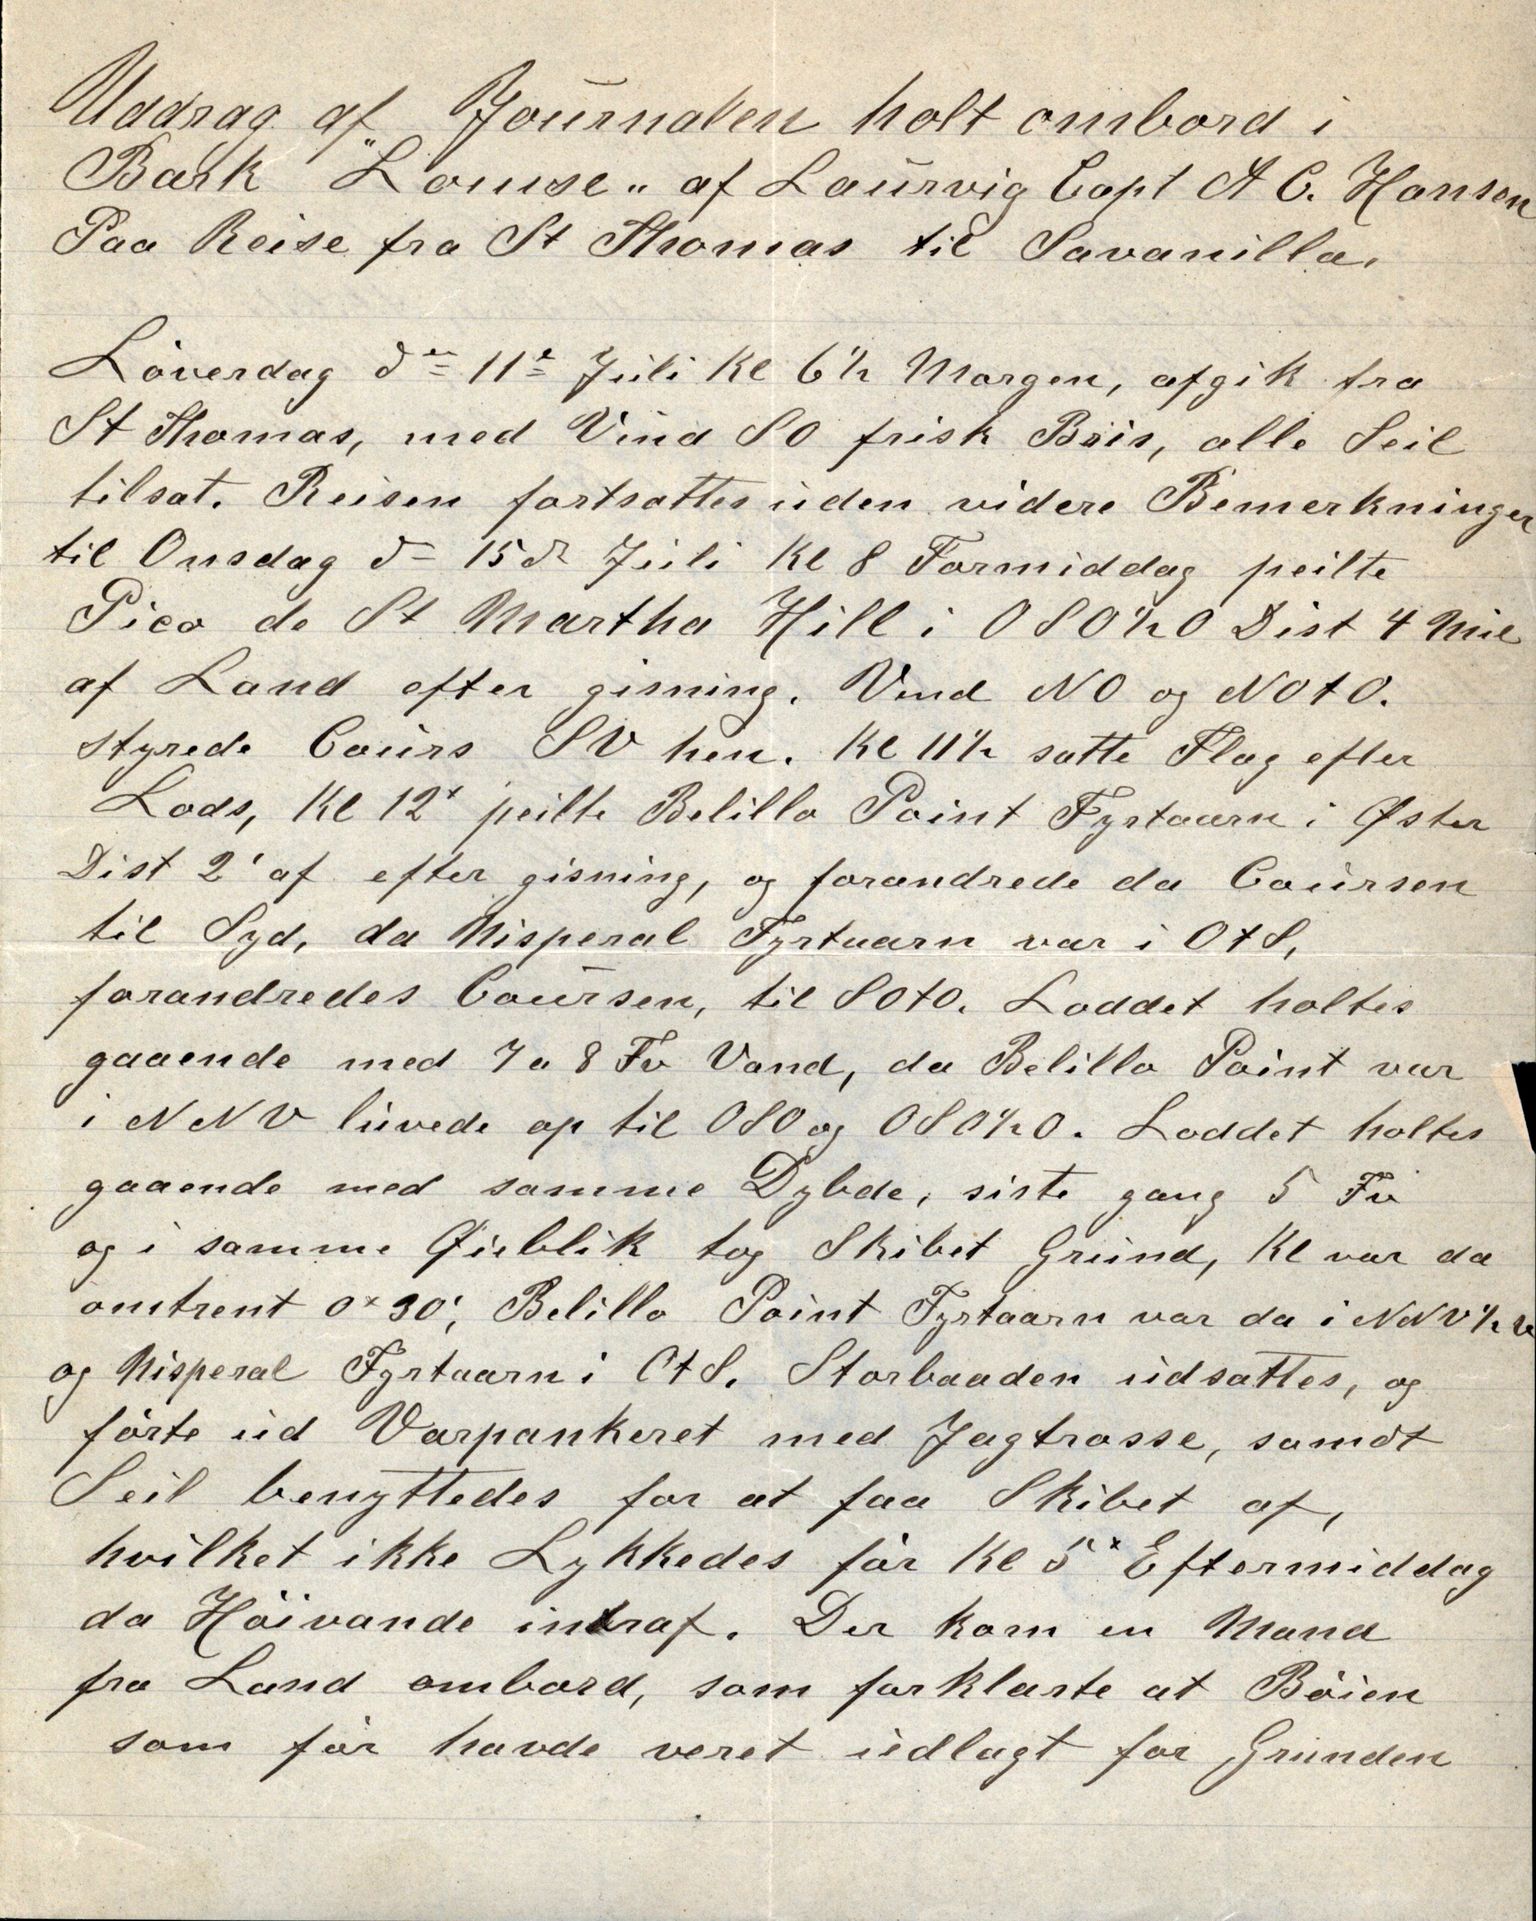 Uddrag af Journalen holt ombord i
Bark "Louise" af Laurvig Capt A C. Hansen
Paa Reise fra St Thomas til Savanilla.
Löverdag dn 11te Juli Kl 6½ Morgen, afgik fra
St Thomas, med Vind SO frisk Bris, alle Seil
tilsat. Reisen fortsattes uden videre Bemerkninger
til Onsdag d 15de Juli Kl 8 Formiddag peilte
Pico de St Martha Hill i OSO½O Dist 4 Mil
af Land efter gisning. Vind NO og NOtO.
styrede Cours SV hen. Kl 11½ satte Flag efter
Lods, Kl 12x peilte Belillo Point Fyrtaarn i Øster
Dist 2' af efter gisning, og forandrede da Coursen
til Syd, da Nisperal Fyrtaarn var i OtS,
forandredes Coursen, til SOtO. Loddet holtes
gaaende med 7 a 8 Fv Vand, da Belillo Point var
i NNV luvede op til OSO og OSO½O. Loddet holtes
gaaende med samme Dybde, siste gang 5 Fv
og i samme Øieblik tog Skibet Grund, Kl var da
omtrent 0x30', Belillo Point Fyrtaarn var da i NNV½V
og Nisperal Fyrtaarn i OtS. Storbaaden udsattes, og
förte ud Varpankeret med Jagtrosse, samdt
Seil benyttedes for at faa Skibet af,
hvilket ikke Lykkedes för Kl 5x Eftermiddag
da Höivande intraf. Der kom en Mand
fra Land ombord, som forklarte at Böien
som för havde veret udlagt for Grunden